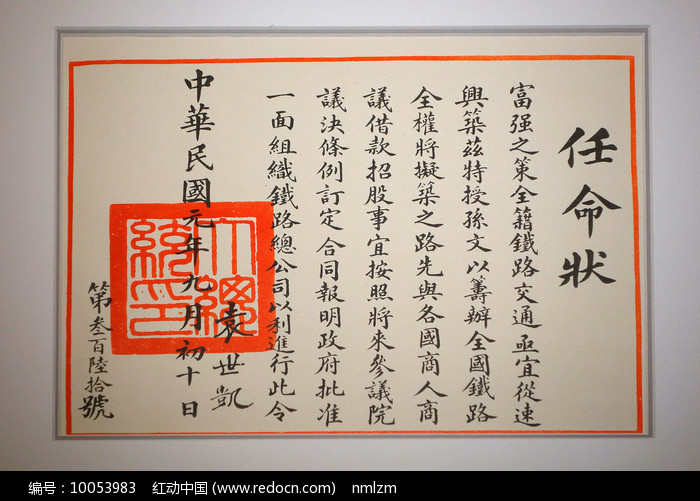 任命狀
富强之策全籍鐵路交通亟宜從速
興築茲特授孫文以籌辦全國鐵路
全權將擬築之路先與各國商人商
議借款招股事宜按照將來參議院
議決條例訂定合同報明政府批准
一面組織鐵路總公司以利進行此令
袁世凱
大總統印
中華民國元年九月初十日
第叁百陸拾號
编号：10053983 红动中国 (www.redocn.com) nmlzm